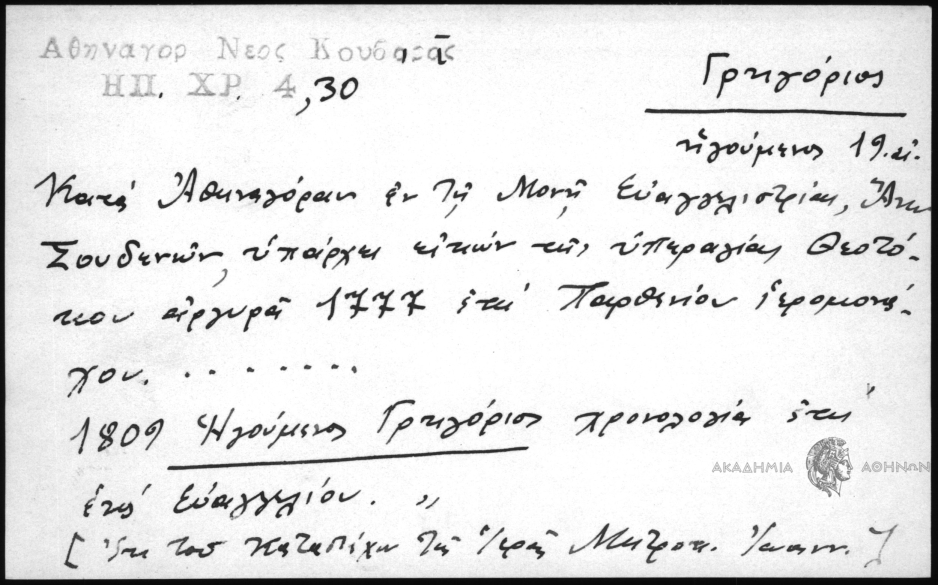 Αθηναγορ Νεος Κουβαρᾶς
ΗΠ. ΧΡ. 4, 30
Γρηγόριος
ἡγούμενος 19. αἰ.
Κατά Ἀθηναγόραν ἐν τῇ Μονῇ Εὐαγγελιστρίας, Ἄνω
Σουδενῶν, ὑπάρχει εἰκών τῆς ὑπεραγίας Θεοτό-
κου ἀργυρᾶ 1777 ἐπί Παρθενίου ἱερομονά-
χου. . . . . . . .
1809 Ἡγούμενος Γρηγόριος χρονολογία ἐπί
ἑνός Εὐαγγελίου. „
ΑΚΑΔΗΜΙΑ ΑΘΗΝΩΝ
[Ἐκ τοῦ τῆς Ἱερᾶς Μητροπ. Ἰωανν.]